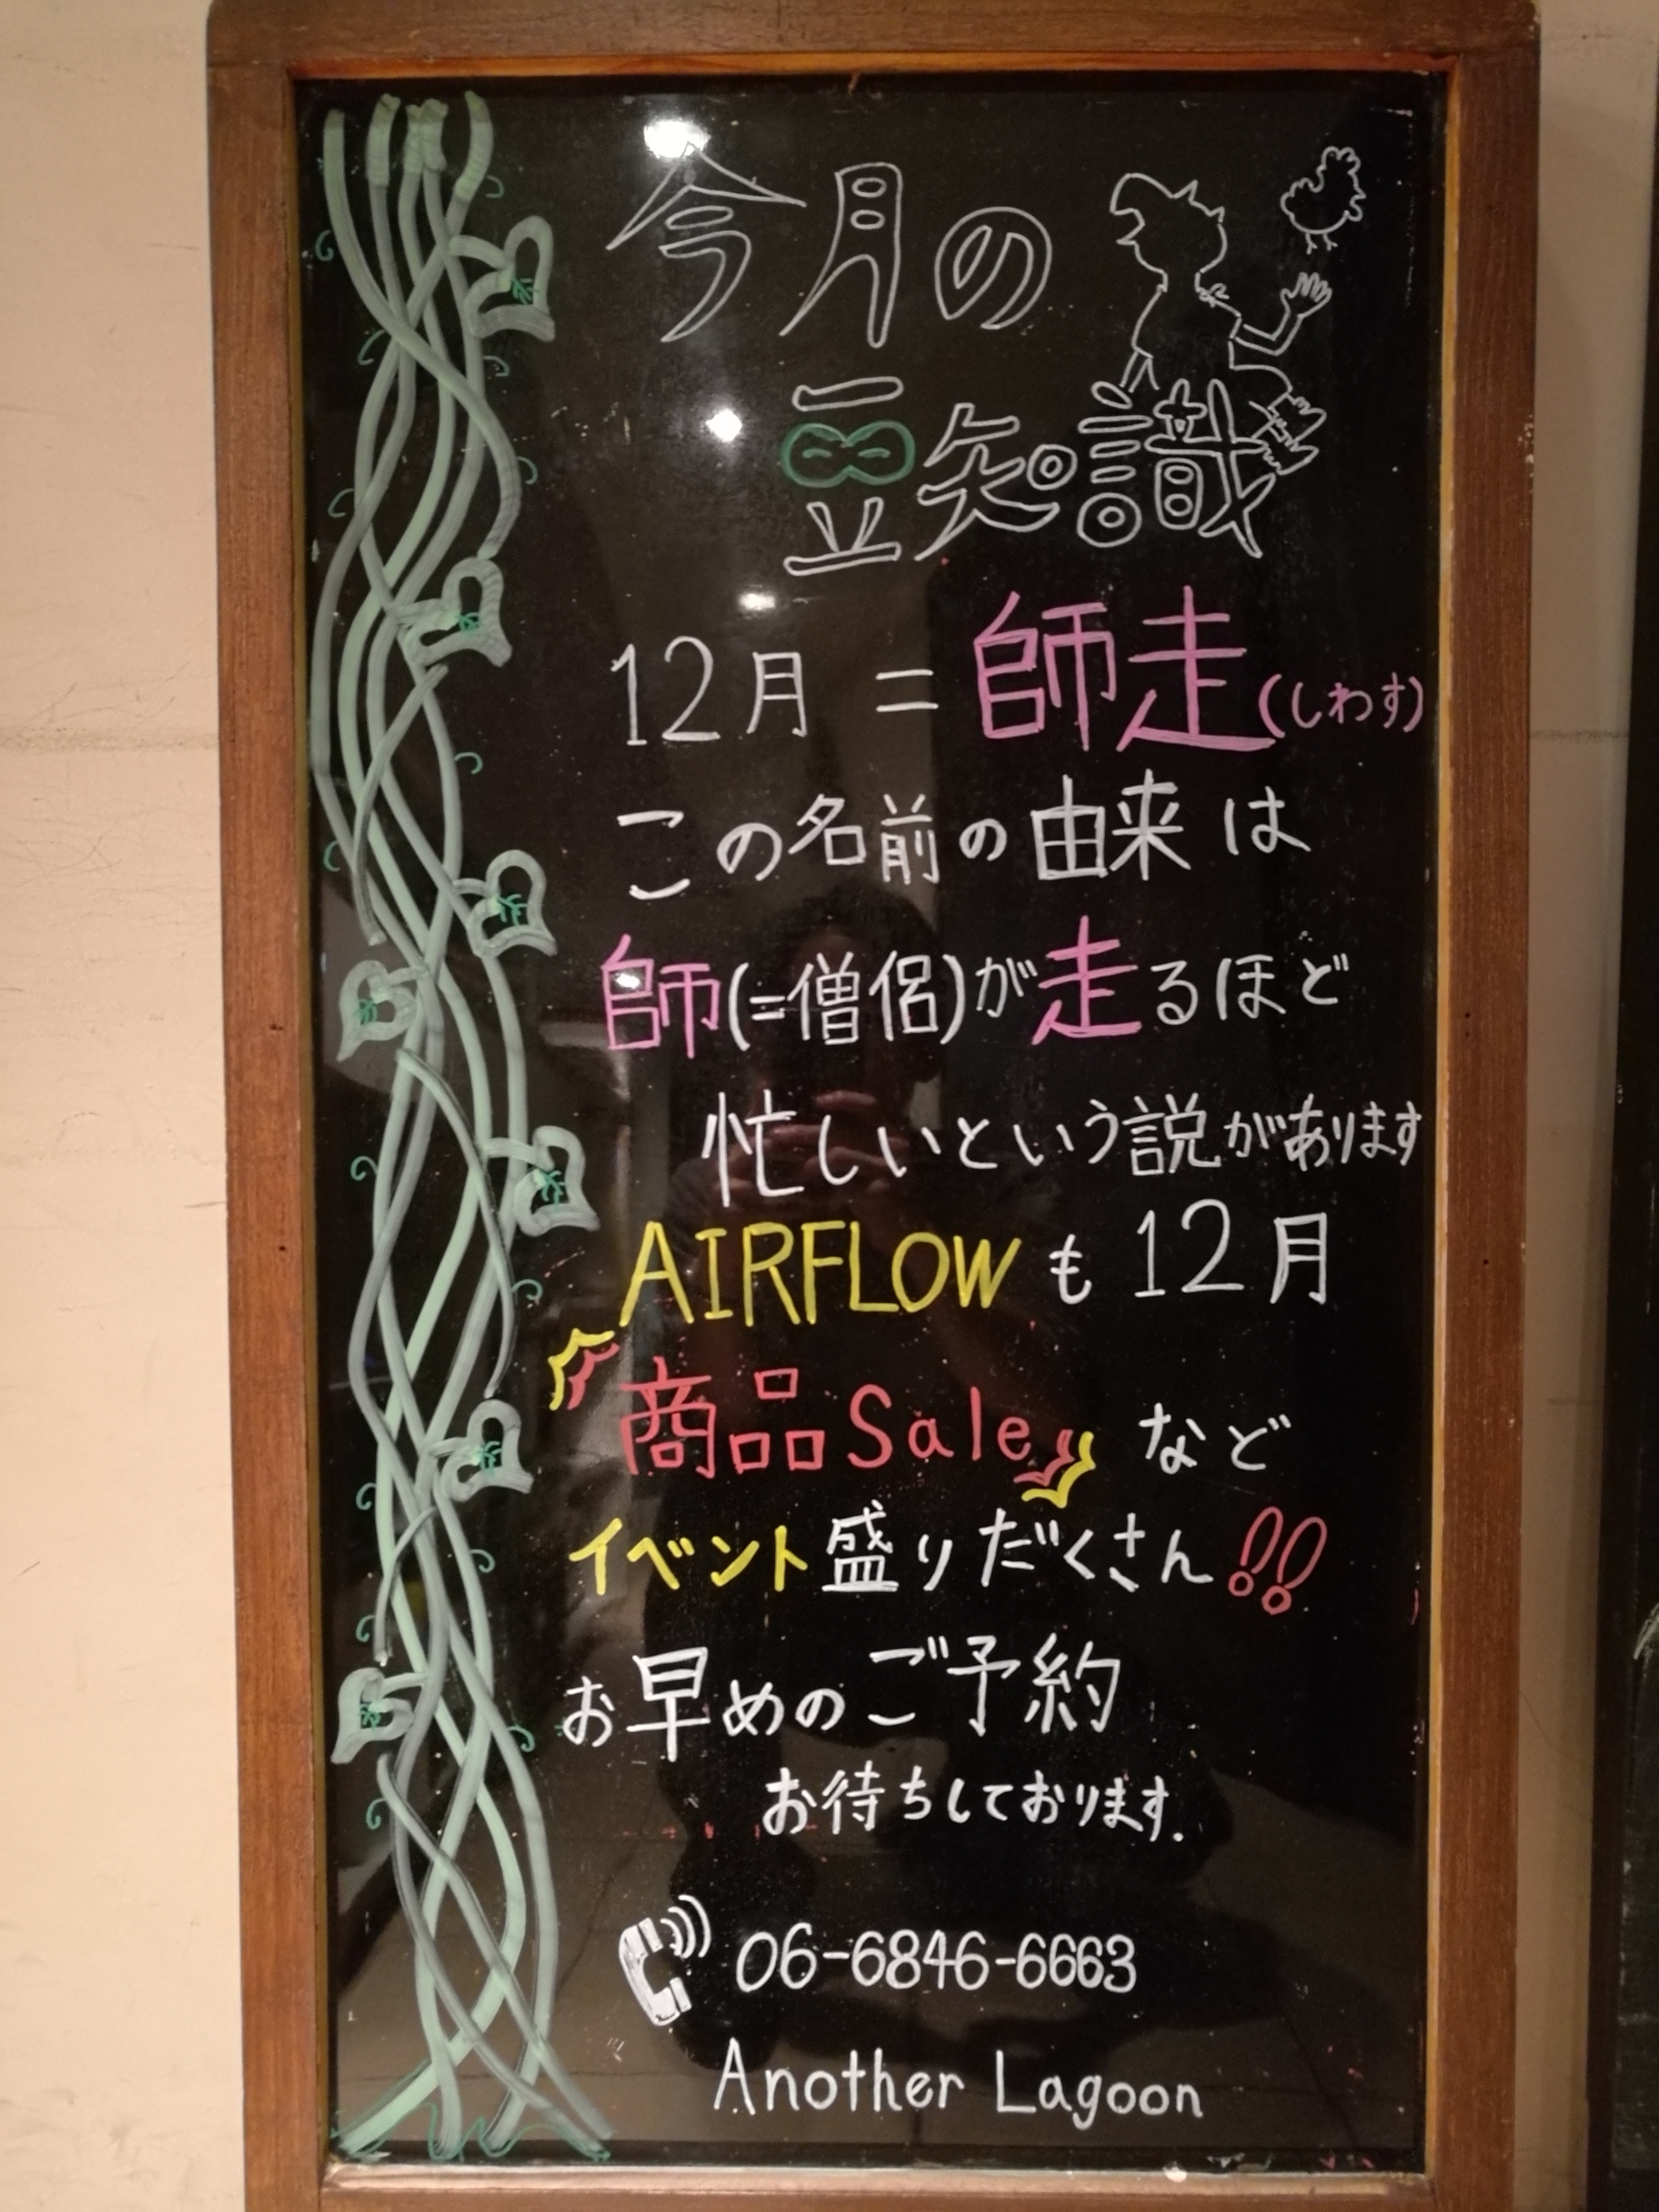 今月の
豆知識
12月 = 師走(しわす)
この名前の由来は
師(=僧侶)が走るほど
忙しいという説があります
AIRFLOWも12月
商品Saleなど
イベント盛りだくさん!!
お早めのご予約
お待ちしております.
06-6846-6663
Another Lagoon